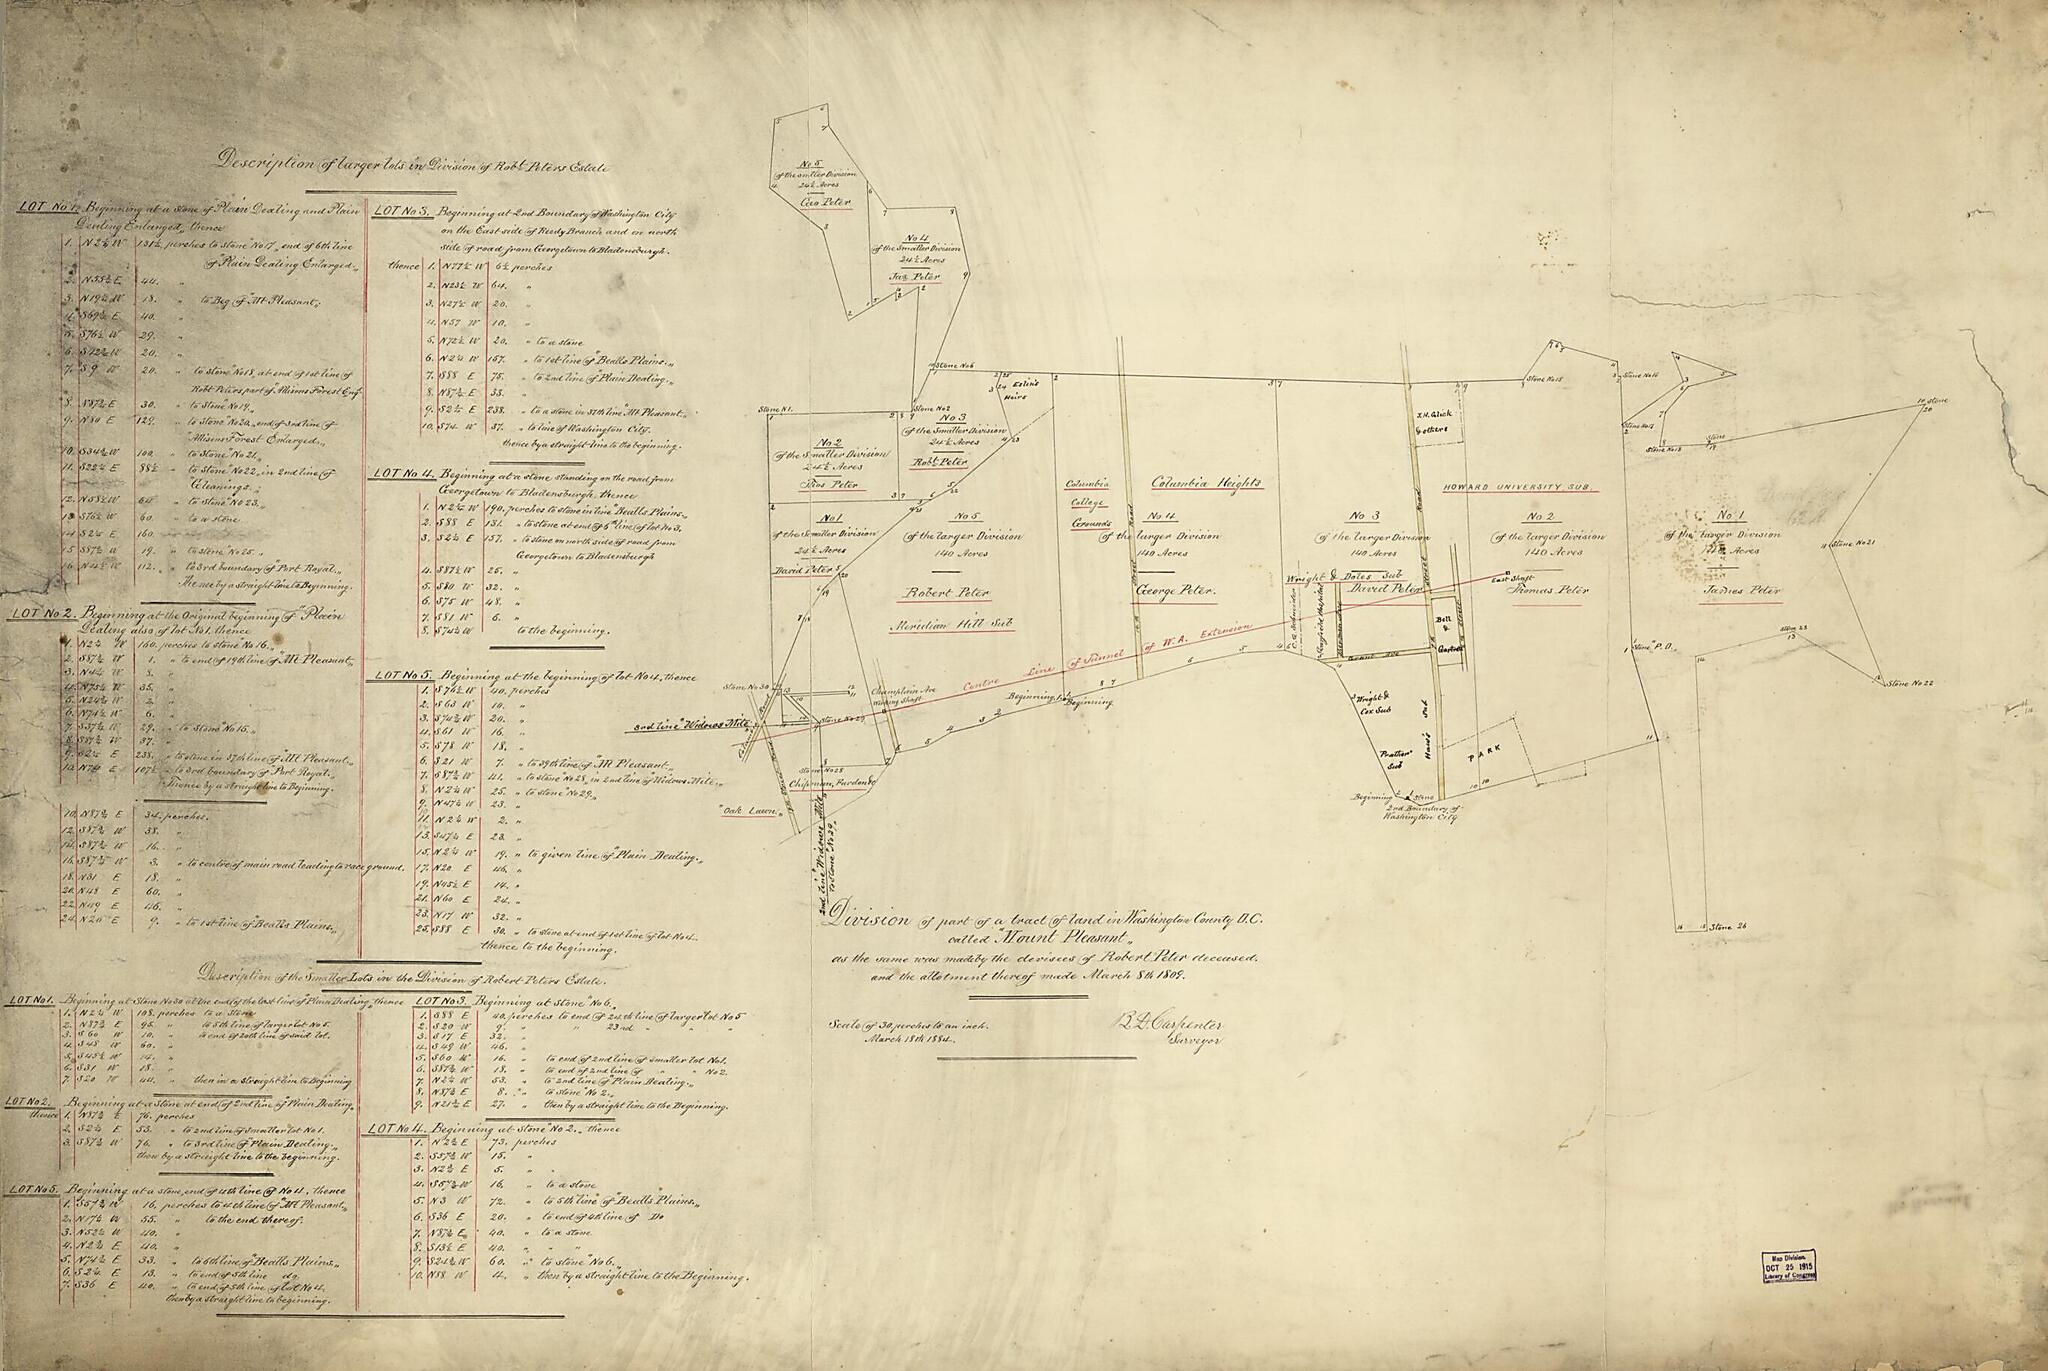 Description of larger lots in Division of Robt. Peters Estate
LOT No 1. Beginning at a stone of "Plain Dealing and Plain
Dealing Enlarged," thence
1. N 2½ W 131½ perches to stone "No 17, end of 6th line
of "Plain Dealing Enlarged."
2. N 55½ E 44. "
3. N 19½ W 18. " to Beg of "Mt Pleasant,"
4. S 69½ E 40. "
5. S 76½ W 29. "
6. 20. "
7. S 9 W 20. " to Stone "No 18, at end of 1st line of
Robt Peters part of "Allisons Forest Enl'g"
8. E 30. " to Stone "No 19."
9. N 80 E 129. " to Stone "No 20," end of 3rd line of
"Allisons Forest Enlarged."
10. S 34½ W 100. " to Stone "No 21."
11. S 22½ E 88½ " to Stone "No 22, in 2nd line of
"Gleanings."
12. N 58½ W 60 " to Stone "No 23.
13 S 76½ W 60. " to a stone
14 S 2½ E 160.
15 S 87½ W 19. " to stone "No 25."
16. N 4½ W 112. " to 3rd boundary of "Port Royal."
Thence by a straight line to Beginning.
LOT No 2. Beginning at the Original beginning of "Plain
Dealing also of lot No 1. thence
1. N 2½ W 160. perches to stone "No 16."
2. S 87½ W 1. " to end of 19th line of "Mt Pleasant"
3. W 8. "
4. N 75½ W 35. "
5. W 2. "
6. N 74½ W 6. "
7. S 37½ W 29. " to Stone "No 15."
8. W 37. "
9. S 2½ E 238. " to stone in 37th line of "Mt Pleasant."
10. N 74 E 107½ " to 3rd boundary of Port Royal."
Thence by a straight line to Beginning.
10. N 87½ E 34. perches.
12. S 87½ W 38. "
14. S 87½ W 16. "
16. S 87½ W 3. " to centre of main road leading to race ground.
18. N 31 E 18. "
20. N 48 E 60. "
22. N 49 E 46. "
24. N 20 E 9. " to 1st line of "Bealls Plains."
LOT No 3. Beginning at 2nd Boundary of Washington City
on the East side of Reedy Branch and on north
side of road from Georgetown to Bladensburgh.
thence 1. N 77½ W 6½ perches
2. N 23½ W 64. "
3. N 27½ W 20. "
4. N 57 W 10. "
5. N 72½ W 20. " to a stone
6. N 2½ W 157. " to 1st line of "Bealls Plains."
7. S 88 E 75. " to 2nd line of "Plain Dealing."
8. N 87½ E 33. "
9. S 2½ E 238. " to a stone in 37th line "Mt Pleasant."
10. S 74 W 37. " to line of Washington City.
thence by a straight line to the beginning.
LOT No 4. Beginning at a stone standing on the road from
Georgetown to Bladensburgh, thence
1. N 2½ W 190. perches to stone in line "Bealls Plains"
2. S 88 E 131. " to stone at end of 6th line of lot No 3.
3. S 2½ E 157. " to stone on north side of road from
Georgetown to Bladensburgh
4. S 87½ W 26. "
5. S 80 W 32. "
6. S 75 W 48. "
7. S 81 W 6. "
8. S 74½ W to the beginning.
LOT No 5. Beginning at the beginning of lot No 4, thence
1. S 76½ W 40. perches
2. S 63 W 10. "
3. S 70½ W 20. "
4. S 61 W 16. "
5. S 78 W 18. "
6. S 21 W 7. " to 39th line of "Mt Pleasant."
7. S 87½ W 41. " to stone "No 28, in 2nd line of "Widows Mite."
8. N 2½ W 25. " to stone "No 29."
9. N 47½ W 23. "
11. N 2½ W 2. "
13. S 47½ E 23. "
15. N 2½ W 19. " to given line of "Plain Dealing."
17. N 20 E 46. "
19. N 45½ E 14. "
21. N 60 E 24. "
23. N 17 W 32. "
25. S 88 E 30. " to stone at end of 1st line of lot No 4.
thence to the beginning.
Description of the Smaller Lots in the Division of Robert Peters Estate.
LOT No 1. Beginning at Stone No 30 at the end of the last line of "Plain Dealing," thence
1. N 2½ W 108. perches to a stone
2. N 87½ E 95. " to 5th line of larger lot No 5.
3. S 60 W 10. " to end of 20th line of said lot.
4. S 48 W 60. "
5. S 45½ W 14. "
6. S 31 W 18. "
7. S 20 W 44. " then in a straight line to Beginning
LOT No 2. Beginning at a Stone at end of 2nd line of "Plain Dealing,"
thence 1. N 87½ E 76. perches
2. S 2½ E 53. " to 2nd line of smaller lot No 1.
3. S 87½ W 76. " to 3rd line of "Plain Dealing."
then by a straight line to the beginning.
LOT No 5. Beginning at a stone, end of 4th line of No 4, thence
1. S 57½ W 16. perches to 4th line of "Mt Pleasant."
2. N 17½ W 55. " to the end thereof.
3. N 52½ W 40. "
4. N 2½ E 40. "
5. N 74½ E 33. " to 6th line of "Bealls Plains."
6. S 2½ E 13. " to end of 5th line do
7. S 36 E 40. " to end of 5th line of lot No 4,
then by a straight line to beginning.
LOT No 3. Beginning at Stone "No 6.
1. S 88 E 40. perches to end of 24th line of larger lot No 5
2. S 20 W 9. " " 23rd " " "
3. S 17 E 32. "
4. S 49 W 46. "
5. S 60 W 16. " to end of 2nd line of smaller lot No 1.
6. S 87½ W 18. " to end of 2nd line of " " No 2.
7. N 2½ W 53. " to 2nd line of "Plain Dealing."
8. N 87½ E 8. " to stone "No 2."
9. N 21½ E 27. " then by a straight line to the Beginning.
LOT No 4. Beginning at Stone "No 2." thence
1. N 2½ E 73. perches
2. S 57½ W 15. "
3. N 2½ E 5. "
4. S 57½ W 16. " to a stone
5. N 3 W 72. " to 5th line of "Bealls" Plains."
6. S 36 E 20. " to end of 4th line of Do
7. N 87½ E 40. " to a stone
8. S 13½ E 40. " "
9. S 24½ W 60. " to stone "No 6."
10. N 88 W 4. " then by a straight line to the Beginning.
No 5
of the smller Division
24½ Acres
Geo Peter
No 4
of the Smaller Division
24½ Acres
Jas Peter
Stone No 6
Eslin's
Heirs
Stone N 1.
Stone No 2
No 3
of the Smaller Division
24½ Acres
Robt Peter
No 2
of the Smaller Division
24½ Acres
Thos Peter
No 1
of the Smaller Division
24½ Acres
David Peter
No 5
of the larger Division
140 Acres
Robert Peter
Meridian Hill Sub
Columbia
College
Grounds
Columbia Heights
No 4
of the larger Division
140 Acres
George Peter.
No 3
of the larger Division
140 Acres
David Peter
Wright & Doles Sub
J. H. Glick
& others
HOWARD UNIVERSITY SUB.
No 2
of the larger Division
140 Acres
Thomas Peter
East Shaft
No 1
of the larger Division
140 Acres
James Peter
Stone No 15
Stone No 16
Stone No 17
Stone No 18
Stone 19
stone 20
Stone No 21
Stone No 22
Stone 23
Stone 26
Stone "P. D.
Bell
&
Gartrell
Grant Ave
Wright &
Cox Sub
Prather
Sub
PARK
Beginning
Stone
2nd Boundary of
Washington City
Centre Line of Tunnel of W. A. Extension
Beginning
Beginning
Champlain Ave
Working Shaft
Stone No 30
Stone No 29
3rd line "Widows Mite
Stone No 28
Chipman, Purdon &c
"Oak Lawn."
2nd line "Widows Mite
to Stone "No 29."
Division of part of a tract of land in Washington County D.C.
called "Mount Pleasant"
as the same was made by the devisees of Robert Peter deceased.
and the allotment thereof made March 8th 1809.
Scale of 30 perches to an inch.
March 18th 1884.
B. D. Carpenter
Surveyor
Map Division
OCT 25 1915
Library of Congress